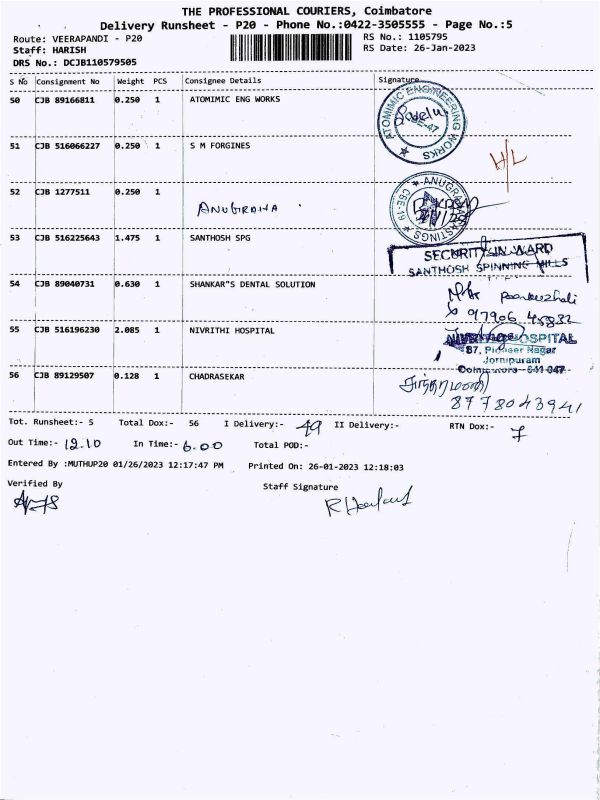 THE PROFESSIONAL COURIERS, Coimbatore
Delivery Runsheet - P20 - Phone No.:0422-3505555 - Page No.:5
Route: VEERAPANDI - P20
Staff: HARISH
DRS No.: DCJB110579505
RS No.: 1105795
RS Date: 26-Jan-2023
S No Consignment No Weight PCS Consignee Details Signature
50 CJB 89166811 0.250 1 ATOMIMIC ENG WORKS
ATOMIMIC ENGINEERING WORKS
51 CJB 516066227 0.250 1 S M FORGINES
H/L
52 CJB 1277511 0.250 1
ANUGRAHA
CBE-19
53 CJB 516225643 1.475 1 SANTHOSH SPG
SECURITY IN WARD
SANTHOSH SPINNING MILLS
54 CJB 89040731 0.630 1 SHANKAR"S DENTAL SOLUTION
55 CJB 516196230 2.085 1 NIVRITHI HOSPITAL
NIVRITHI HOSPITAL
87, Pioneer Nagar
56 CJB 89129507 0.128 1 CHADRASEKAR
8778043941
Tot. Runsheet:- 5 Total Dox:- 56 I Delivery:- 49 II Delivery:- RTN Dox:- 7
Out Time:- 12.10 In Time:- 6.00 Total POD:-
Entered By :MUTHUP20 01/26/2023 12:17:47 PM Printed On: 26-01-2023 12:18:03
Verified By Staff Signature